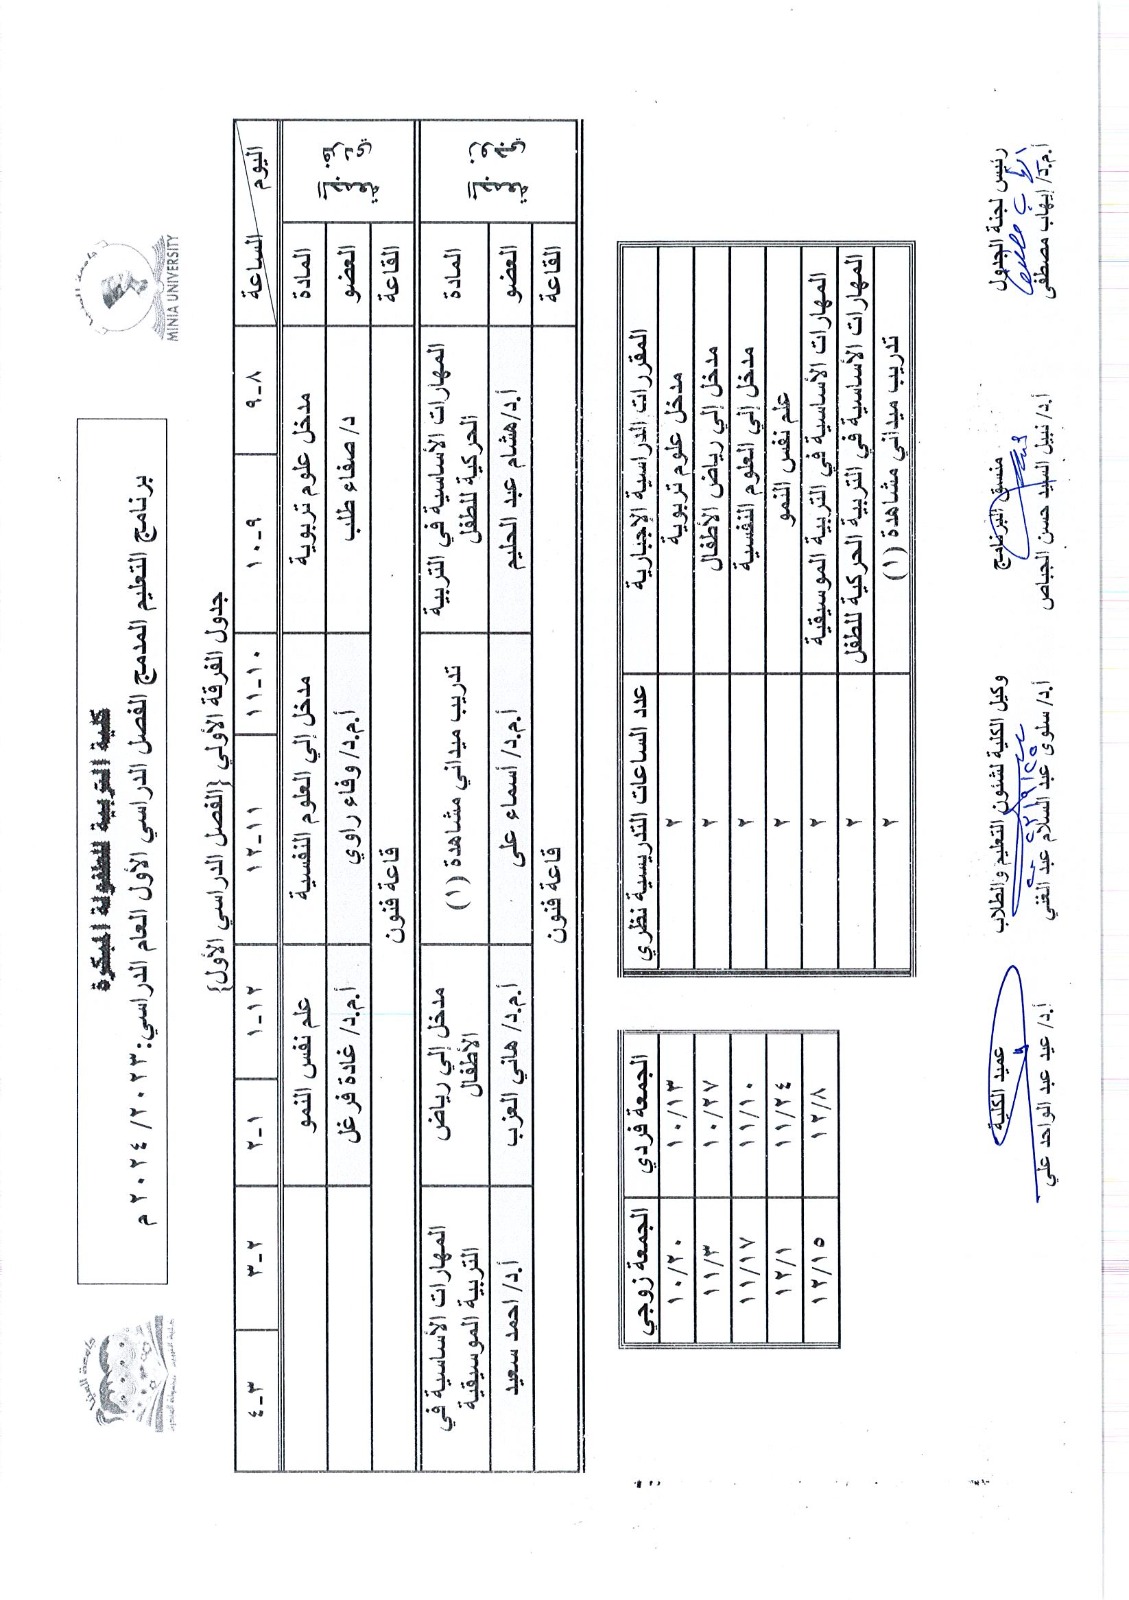 جامعة المنيا
MINIA UNIVERSITY
كلية التربية للطفولة المبكرة
برنامج التعليم المدمج الفصل الدراسي الأول العام الدراسي: ٢٠٢٣/ ٢٠٢٤ م
جدول الفرقة الأولي {الفصل الدراسي الأول}
اليوم الساعة ٨-٩ ٩-١٠ ١٠-١١ ١١-١٢ ١٢-١ ١-٢ ٢-٣ ٣-٤
المادة مدخل علوم تربوية مدخل إلي العلوم النفسية علم نفس النمو
العضو د/ صفاء طلب أ.م.د/ وفاء راوي أ.م.د/ غادة فرغل
القاعة قاعة فنون
المادة المهارات الأساسية في التربية الحركية للطفل تدريب ميداني مشاهدة (١) مدخل إلي رياض الأطفال المهارات الأساسية في التربية الموسيقية
العضو أ.د/هشام عبد الحليم أ.م.د/ أسماء على أ.م.د/ هاني العزب أ.د/ احمد سعيد
القاعة قاعة فنون
المقررات الدراسية الإجبارية عدد الساعات التدريسية نظري
مدخل علوم تربوية ٢
مدخل إلي رياض الأطفال ٢
مدخل إلي العلوم النفسية ٢
علم نفس النمو
المهارات الأساسية في التربية الموسيقية ٢
المهارات الأساسية في التربية الحركية للطفل ٢
تدريب ميداني مشاهدة (١) ٢
الجمعة فردي الجمعة زوجي
١٠/١٣ ١٠/٢٠
١٠/٢٧ ١١/٣
١١/١٠ ١١/١٧
١١/٢٤ ١٢/١
١٢/٨ ١٢/١٥
رئيس لجنة الجدول منسق البرنامج وكيل الكلية لشئون التعليم والطلاب عميد الكلية
أ.م.د/ إيهاب مصطفى أ.د/ نبيل السيد حسن الجباص أ.د/ سلوى عبد السلام عبد الغني أ.د/ عيد عبد الواحد علي